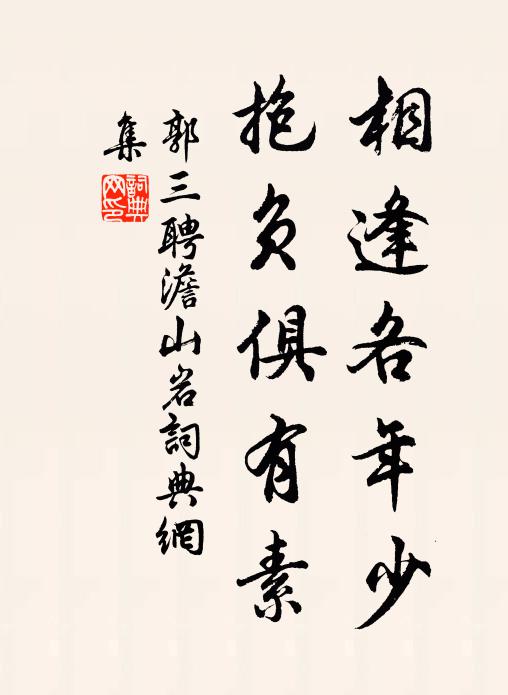 相逢各年少
抱负俱有素
郭三聘澹山岩詞典網
集
詞典網印